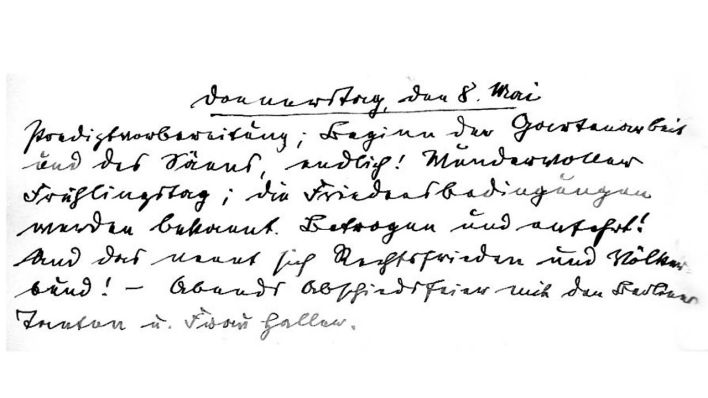 Donnerstag, den 8. Mai
Predigtvorbereitung; Beginn der Gartenarbeit
und des Säens, endlich! Wundervoller
Frühlingstag; die Friedensbedingungen
werden bekannt. Betrogen und entehrt!
Und das nennt sich Rechtsfrieden und Völker-
bund! – Abends Abschiedsfeier mit den Berliner
Tanten u. Frau Haller.